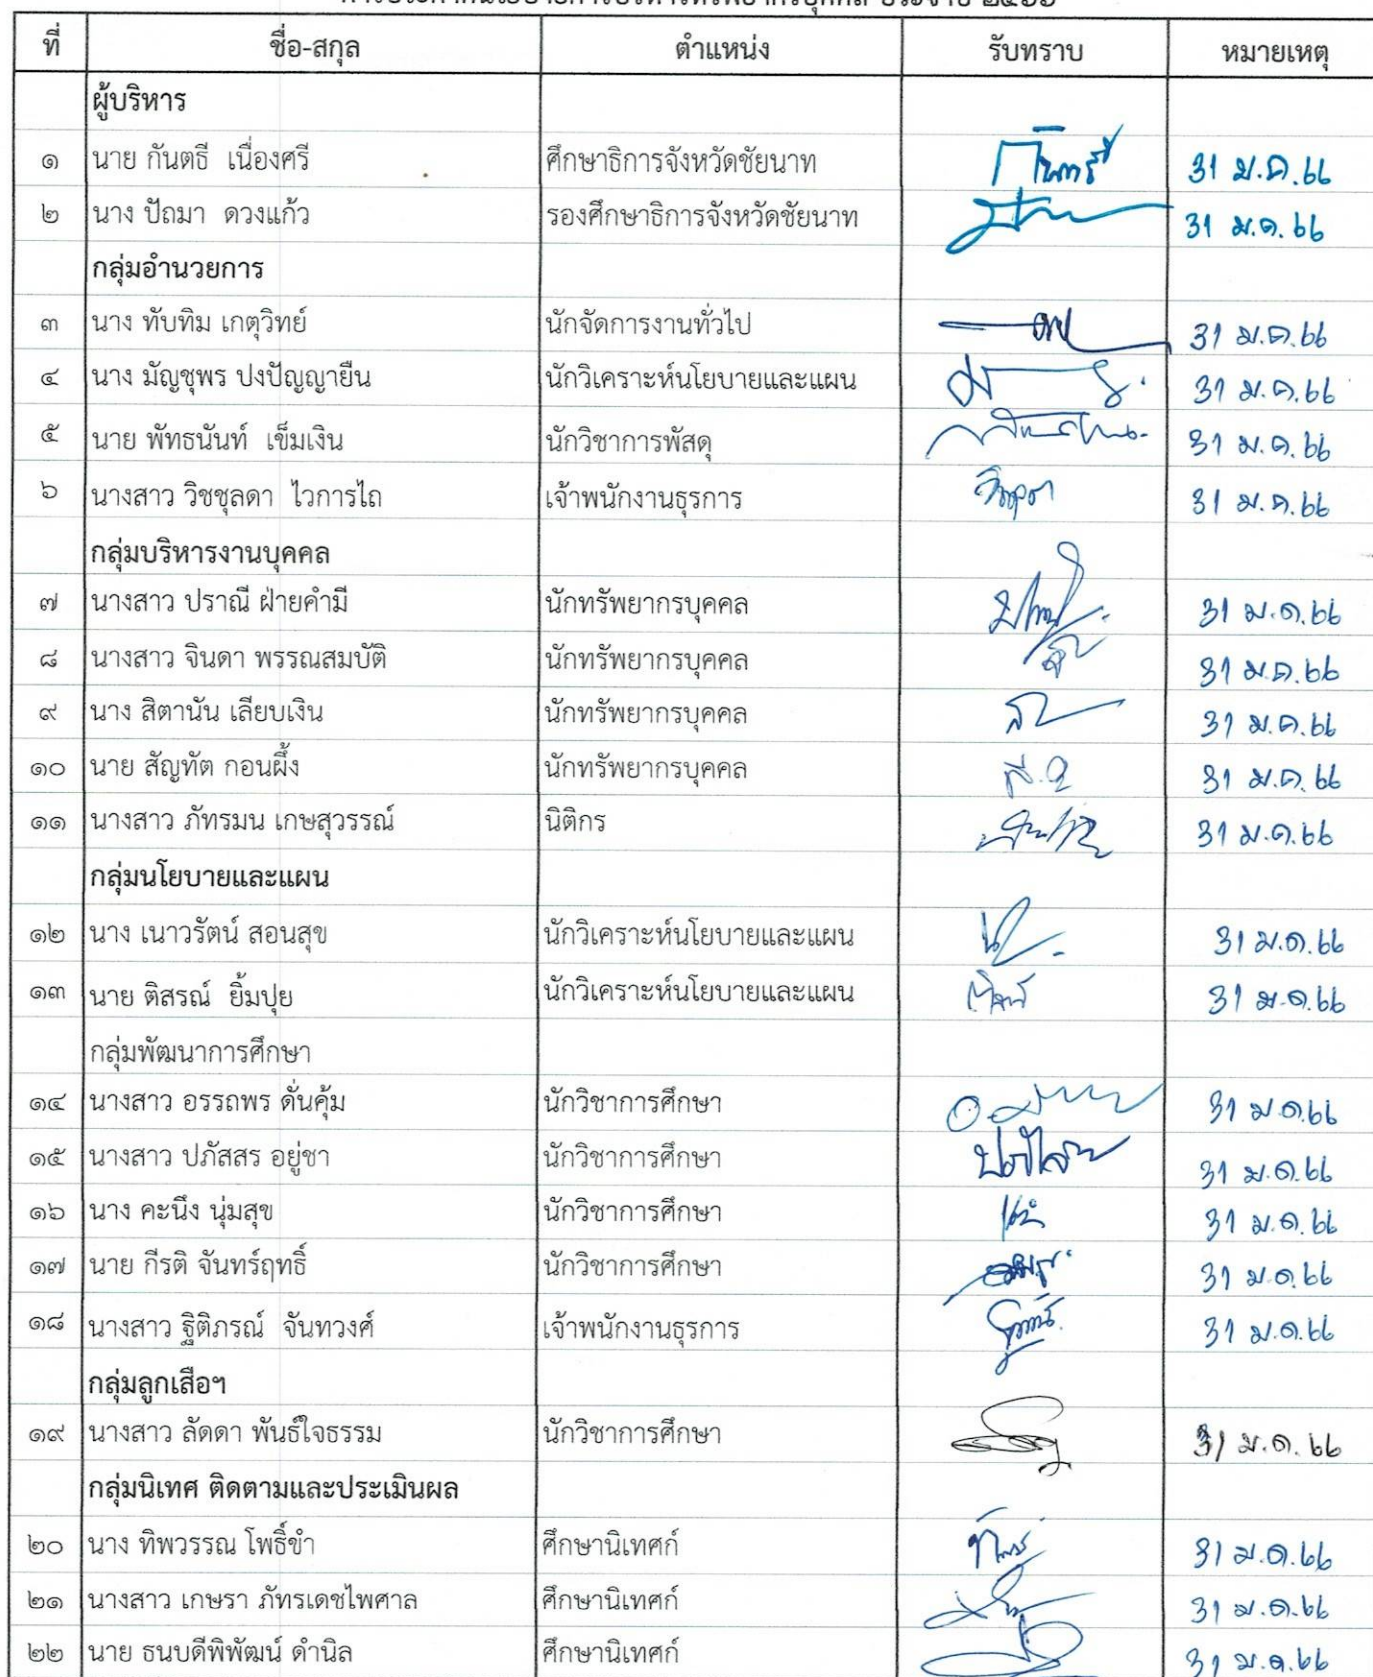 ที่ ชื่อ-สกุล ตำแหน่ง รับทราบ หมายเหตุ
ผู้บริหาร
๑ นาย กันตธี เนื่องศรี ศึกษาธิการจังหวัดชัยนาท 31 ม.ค.66
๒ นาง ปัถมา ดวงแก้ว รองศึกษาธิการจังหวัดชัยนาท 31 ม.ค.66
กลุ่มอำนวยการ
๓ นาง ทับทิม เกตุวิทย์ นักจัดการงานทั่วไป 31 ม.ค.66
๔ นาง มัญชุพร ปงปัญญายืน นักวิเคราะห์นโยบายและแผน 31 ม.ค.66
๕ นาย พัทธนันท์ เข็มเงิน นักวิชาการพัสดุ 31 ม.ค.66
๖ นางสาว วิชชุลดา ไวการไถ เจ้าพนักงานธุรการ 31 ม.ค.66
กลุ่มบริหารงานบุคคล
๗ นางสาว ปราณี ฝ่ายคำมี นักทรัพยากรบุคคล 31 ม.ค.66
๘ นางสาว จินดา พรรณสมบัติ นักทรัพยากรบุคคล 31 ม.ค.66
๙ นาง สิตานัน เลียบเงิน นักทรัพยากรบุคคล 31 ม.ค.66
๑๐ นาย สัญทัต กอนผึ้ง นักทรัพยากรบุคคล 31 ม.ค.66
๑๑ นางสาว ภัทรมน เกษสุวรรณ์ นิติกร 31 ม.ค.66
กลุ่มนโยบายและแผน
๑๒ นาง เนาวรัตน์ สอนสุข นักวิเคราะห์นโยบายและแผน 31 ม.ค.66
๑๓ นาย ติสรณ์ ยิ้มปุย นักวิเคราะห์นโยบายและแผน 31 ม.ค.66
กลุ่มพัฒนาการศึกษา
๑๔ นางสาว อรรถพร ดั่นคุ้ม นักวิชาการศึกษา 31 ม.ค.66
๑๕ นางสาว ปภัสสร อยู่ชา นักวิชาการศึกษา 31 ม.ค.66
๑๖ นาง คะนึง นุ่มสุข นักวิชาการศึกษา 31 ม.ค.66
๑๗ นาย กีรติ จันทร์ฤทธิ์ นักวิชาการศึกษา 31 ม.ค.66
๑๘ นางสาว ฐิติภรณ์ จันทวงศ์ เจ้าพนักงานธุรการ 31 ม.ค.66
กลุ่มลูกเสือฯ
๑๙ นางสาว ลัดดา พันธ์ใจธรรม นักวิชาการศึกษา 31 ม.ค.66
กลุ่มนิเทศ ติดตามและประเมินผล
๒๐ นาง ทิพวรรณ โพธิ์ขำ ศึกษานิเทศก์ 31 ม.ค.66
๒๑ นางสาว เกษรา ภัทรเดชไพศาล ศึกษานิเทศก์ 31 ม.ค.66
๒๒ นาย ธนบดีพิพัฒน์ ดำนิล ศึกษานิเทศก์ 31 ม.ค.66